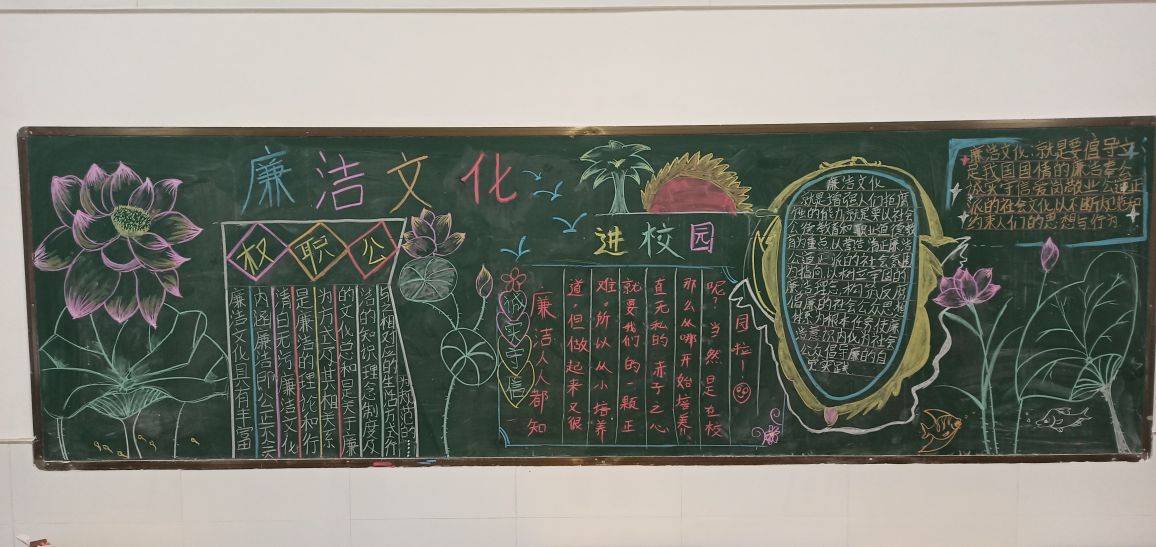 廉洁文化
进校园
权职公
廉洁文化具有丰富
内涵廉洁即公正无贪
清白无污廉洁文化
是廉洁的理论和行
为方式方及其相关系
的文化总和是关于廉
洁的知识理念制度及
与之相对应的生活方式行
为规范的……
诚实守信
廉洁人人都知
道,但做起来又很
难。所以从小培养
就要我们的一颗正
直无私的赤子之心
那么从哪开始培养
呢?当然是在校
园啦!
廉洁文化
就是增强人们拒腐
蚀的能力就是要以社会
公德教育和职业道德教
育为重点,以营造清正廉洁
公道正派的社会氛围
为指向以树立牢固的
廉洁理念,反腐
倡廉的社会公众思想
为根本任使廉
洁意识内化为社会
公众信守廉的自
觉实践
廉洁文化:就是要倡导立
足我国国情的廉洁奉公
诚实守信爱岗敬业公道正
派的社会文化以不断规范和
约束人们的思想与行为